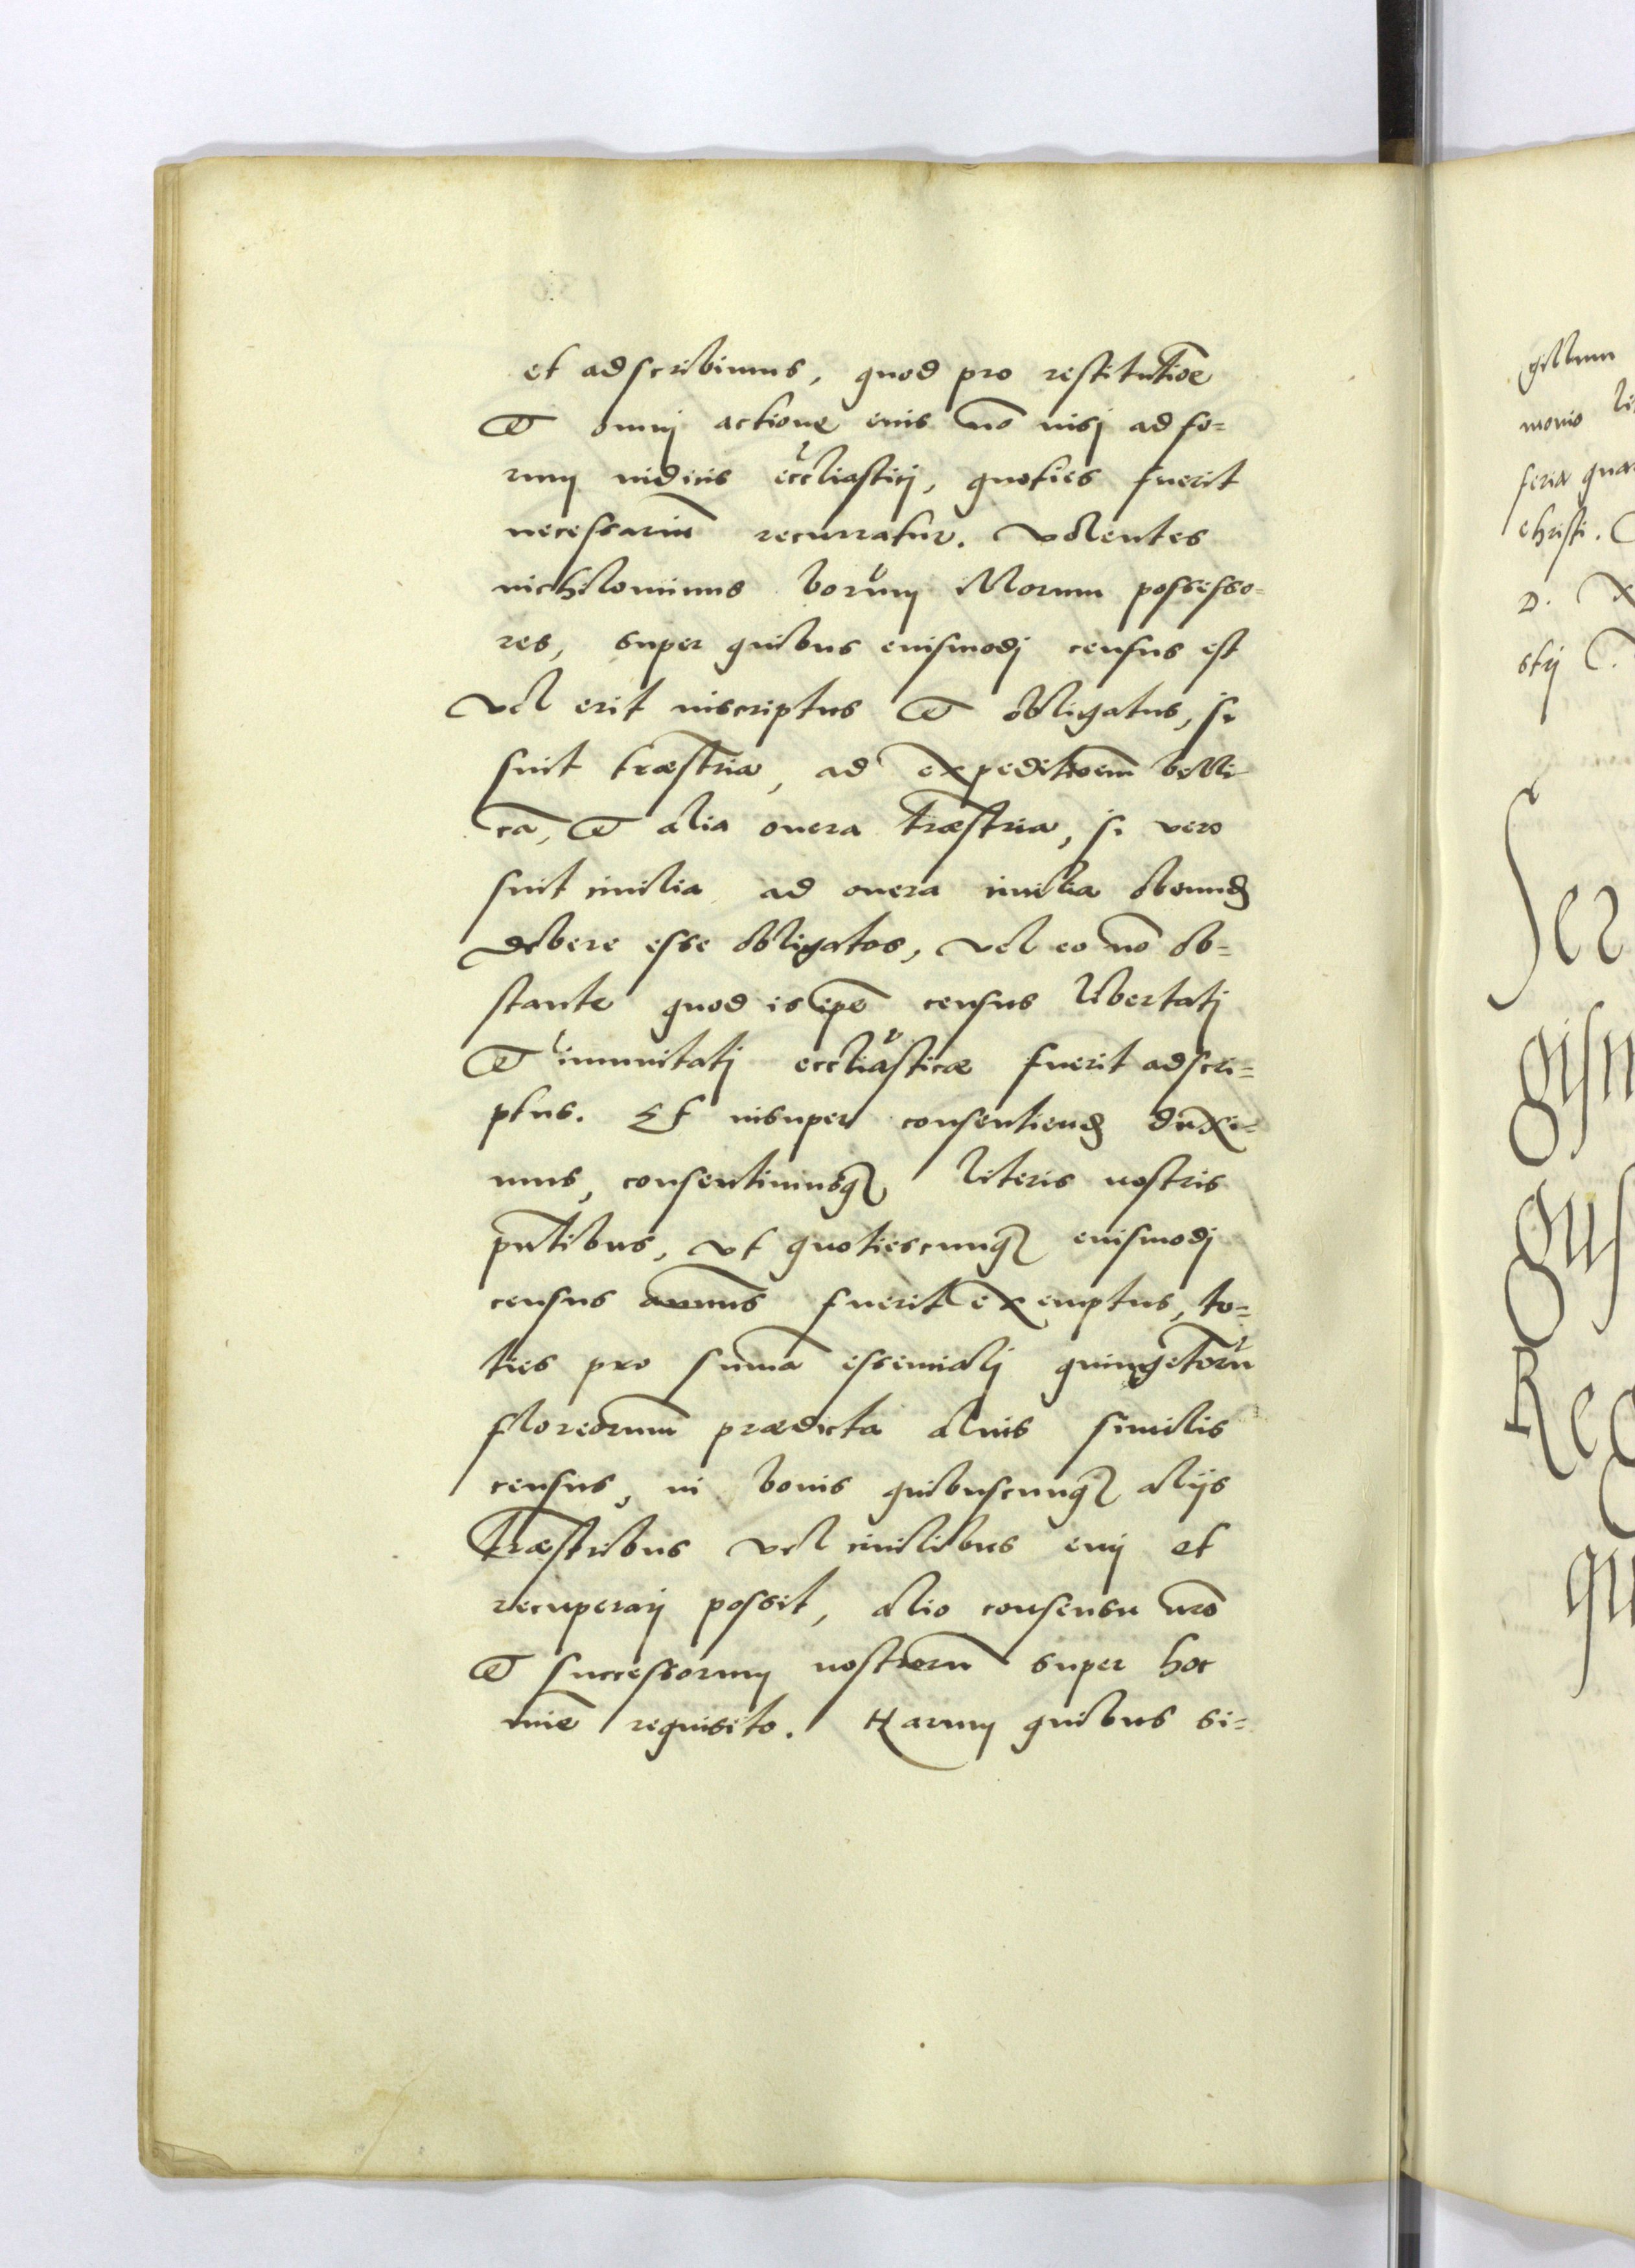 et adscribimus, quod pro restitutiõe
et omnj actione eius nõ nisj ad fo=
rum iudicis eccliasticj, quoties fuerit
necessariũ recurratur. Volentes
nichilominus borum illorum possesso=
res, super quibus euismodj census est
vel erit inscriptus et obligatus, si
sint træstria, ad expeditioem belli
cã, et alia onera træstria, si vero
sint ciuilia ad onera ciuilia obeund
debere esse obligatos, vel eo nõ ob=
stante quod is ipẽ census libertatj
et imunitatj eccliasticæ fuerit adscri=
ptus. Et insuper consentiend duxi=
mus, consentimusq literis nostris
pntibus, vt quotiescunq euismodj
census annuus fuerit exemptus, to=
ties pro summa essencialj quingetorũ
floreorum prædicta alius similis
census, in bonis quibuscunq alijs
træstribus vel ciuilibus emj et
recuperarj possit, alio consensu nrõ
et successorum nostrorũ super hoc
mie requisito. Harum quibus si=
gillum
monio li
feria qua
christi.
D.
stri
Ser
gism
gus
Reg
gu